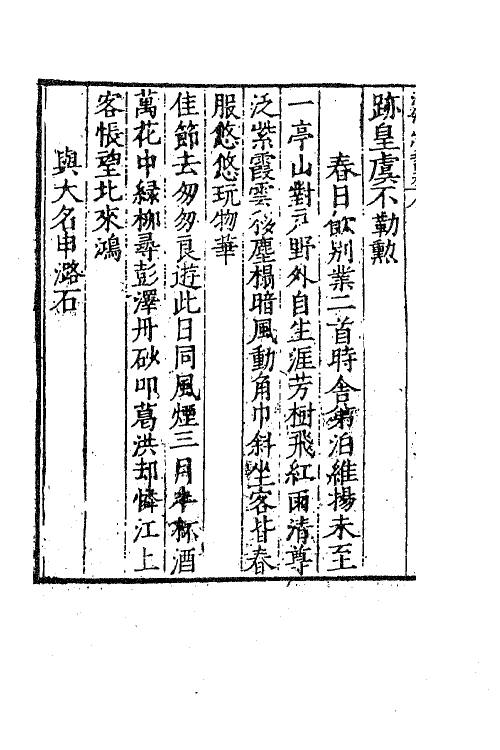 跡皇虞不勒勲
春日飲别業二首時舎弟泊維揚未至
一亭山對戸野外自生涯芳樹飛紅雨清尊
泛紫霞雲移塵榻暗風動角巾斜坐客皆春
服悠悠玩物華
佳節去匆匆良遊此日同風煙三月半杯酒
萬花中緑柳尋彭澤丹砂叩葛洪却憐江上
客悵望北來鴻
與大名申潞石